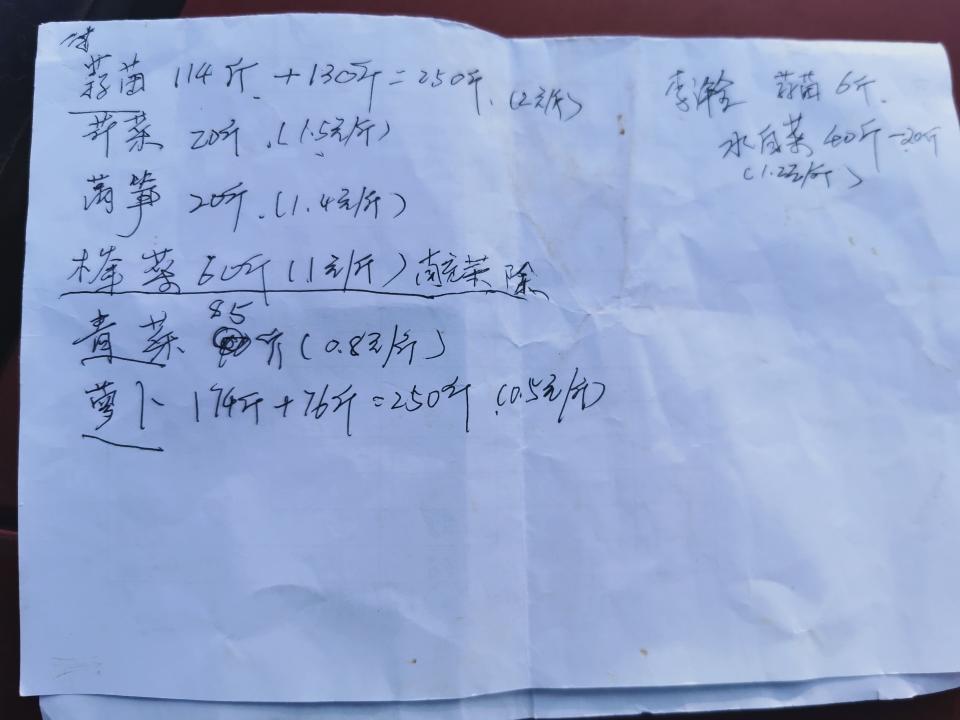 蒜苗 114斤 +130斤=250斤.(2元/斤)
芹菜 20斤.(1.5元/斤)
莴笋 20斤.(1.4元/斤)
棒菜 60斤(1元/斤)南充菜 除
青菜 85斤(0.8元/斤)
萝卜 174斤+76斤=250斤(0.5元/斤)
李 蒜苗 6斤.
水白菜 40斤-20斤
(1.2元/斤)